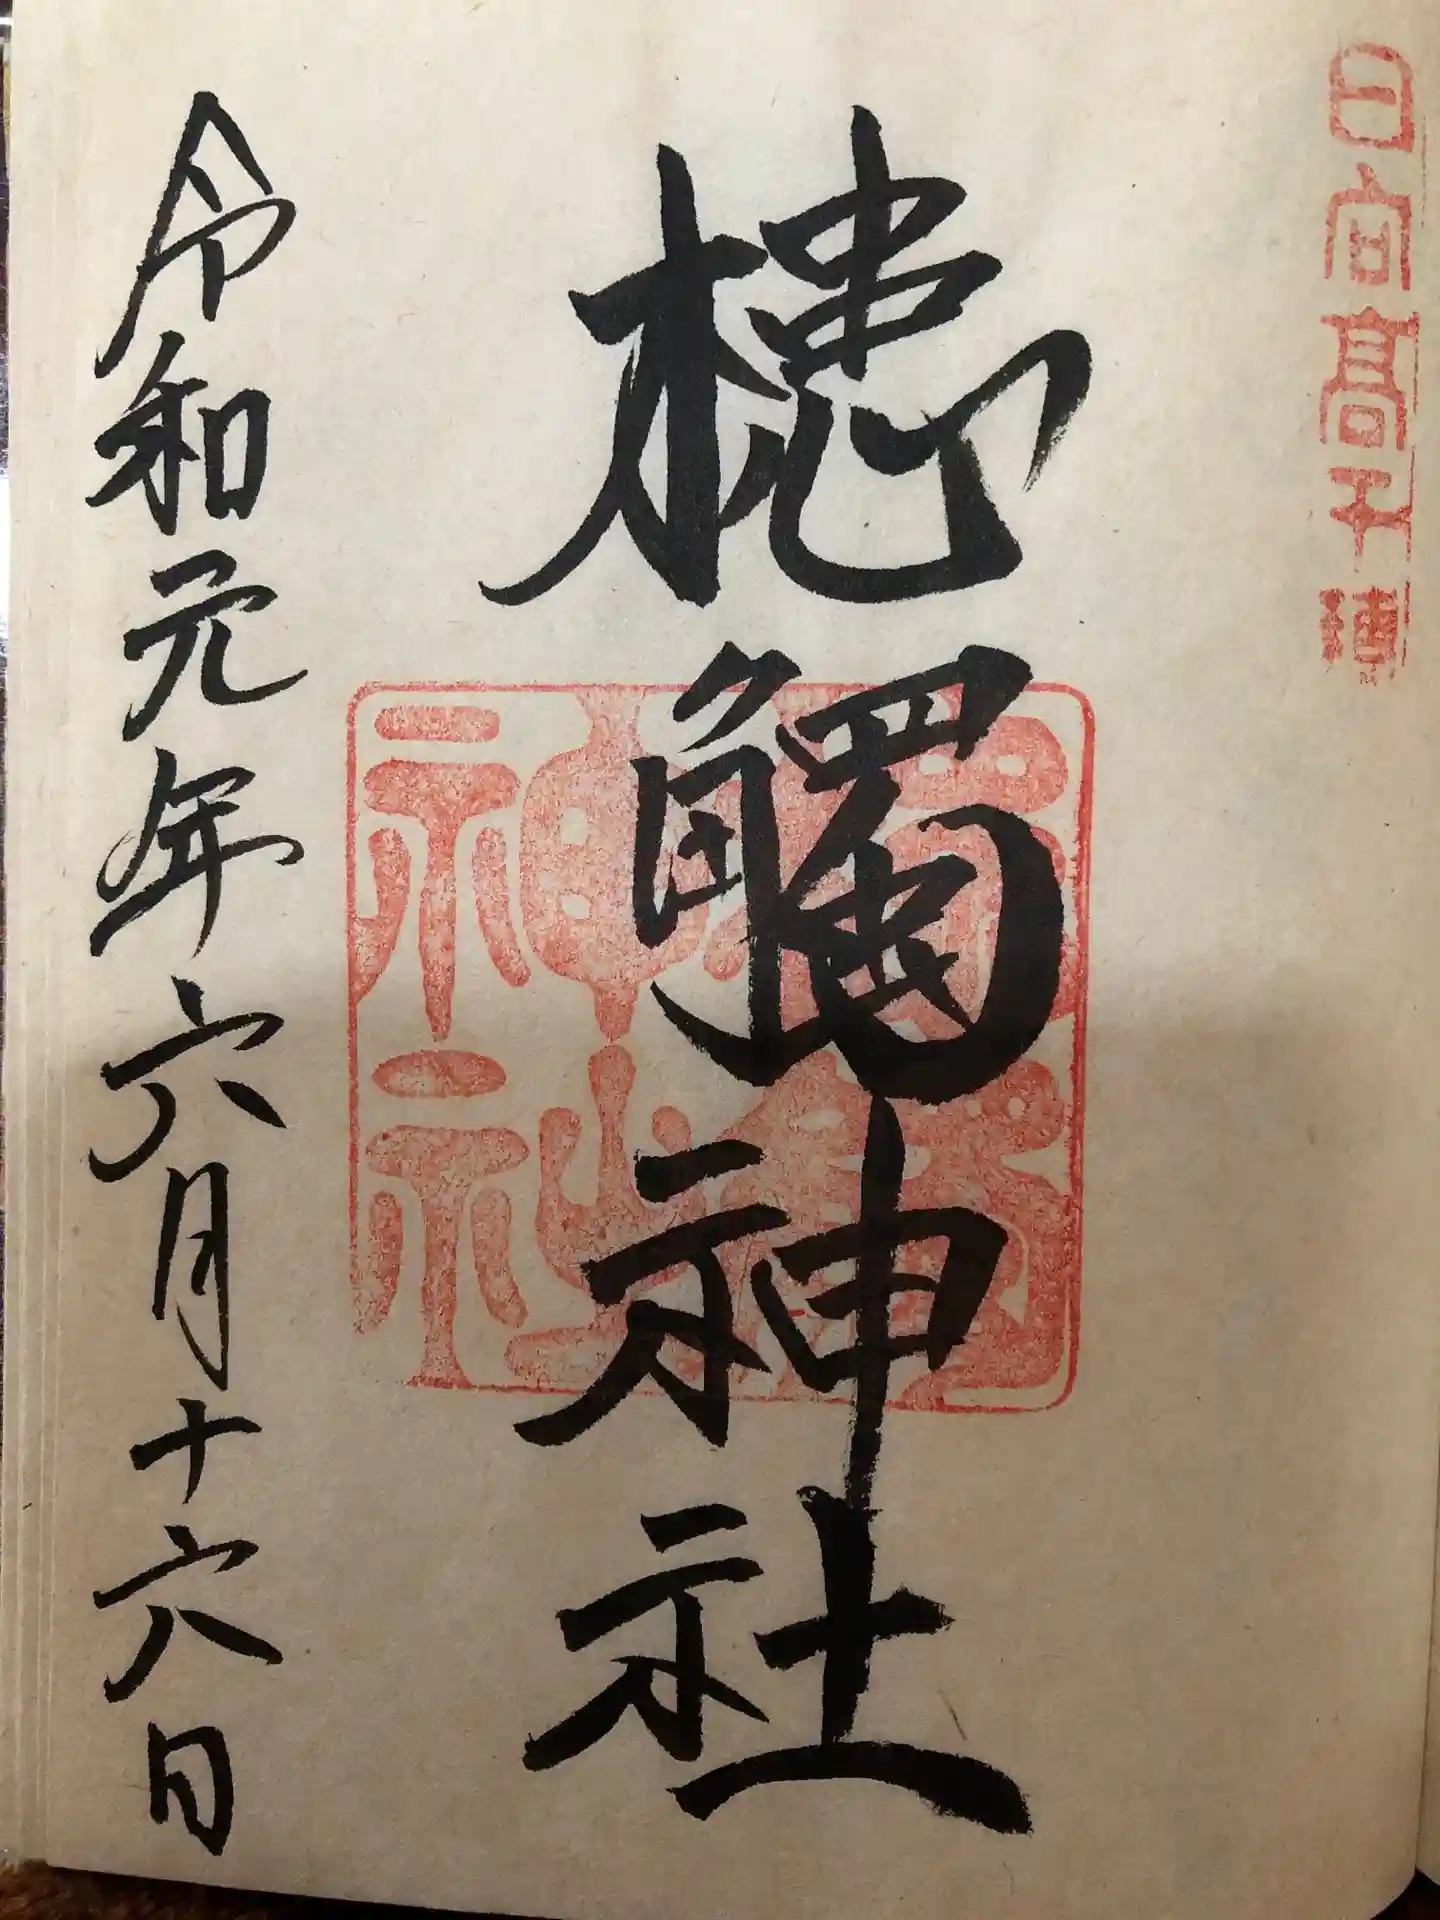 日向髙千穗
槵觸神社
神社
令和元年六月十六日